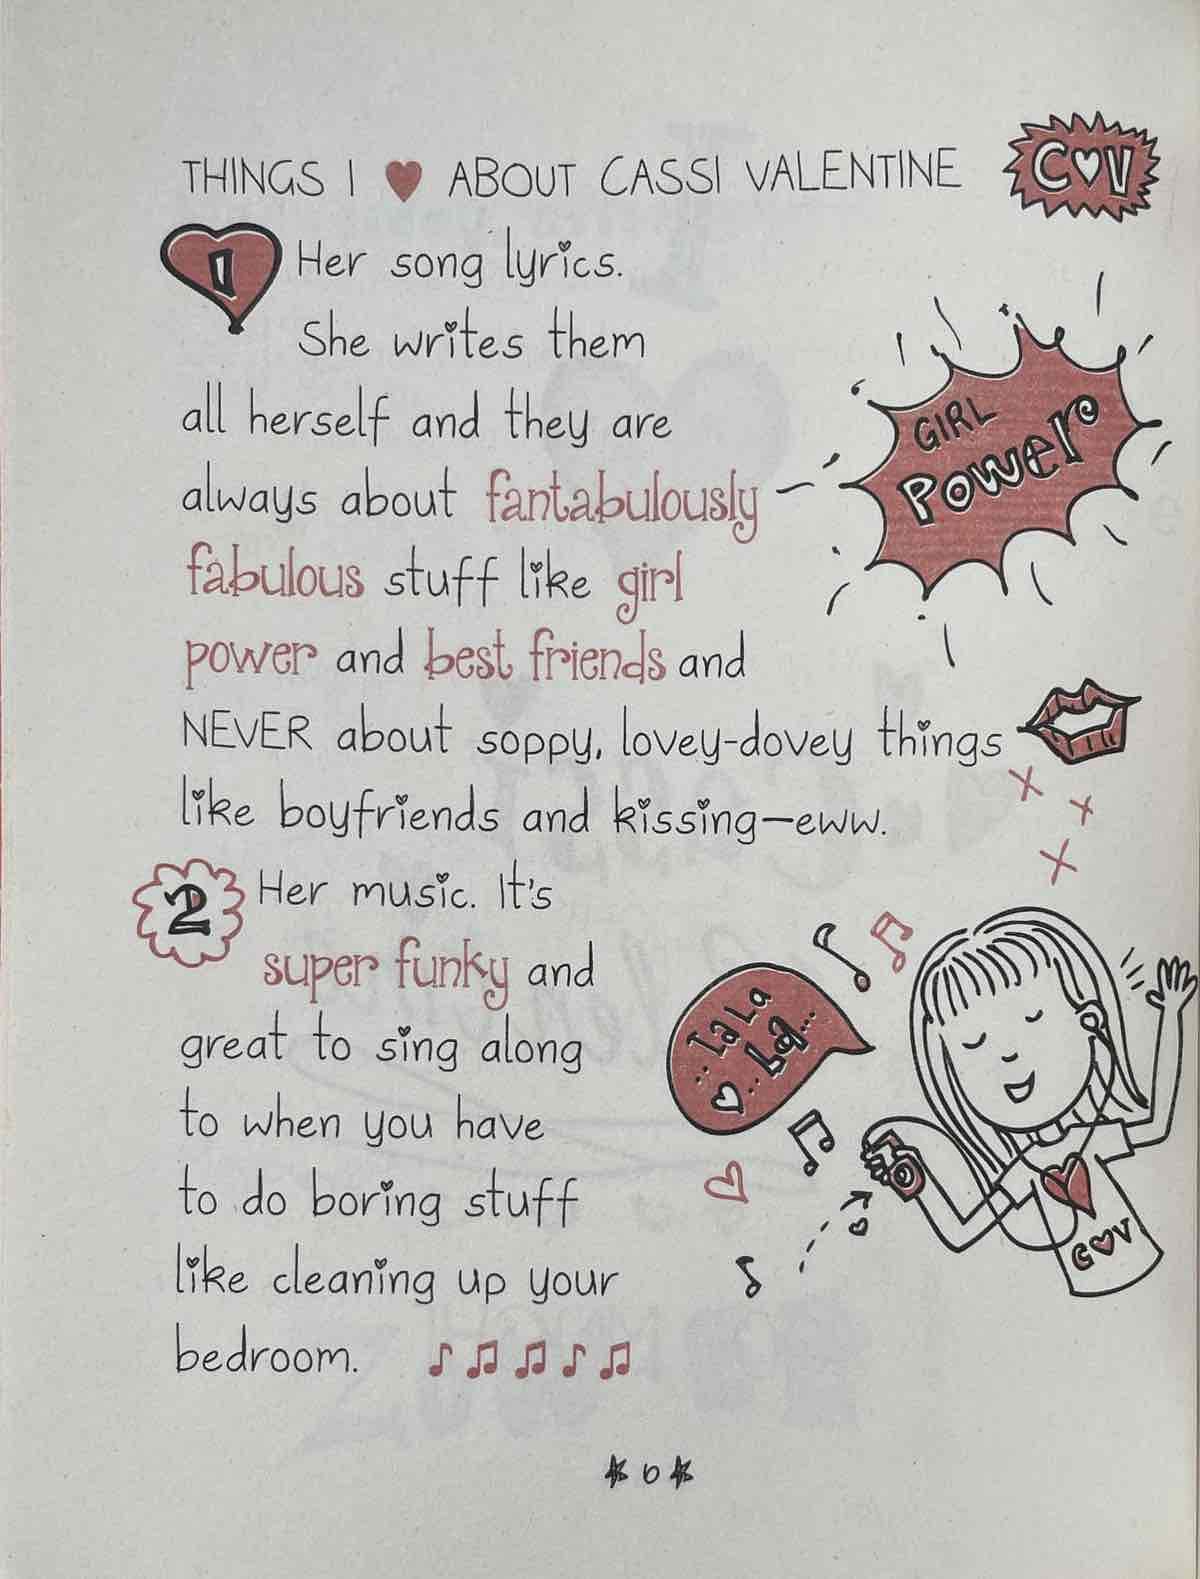 THINGS I ♥ ABOUT CASSI VALENTINE
C♥V
1 Her song lyrics.
She writes them
all herself and they are
always about fantabulously
fabulous stuff like girl
power and best friends and
NEVER about soppy, lovey-dovey things
like boyfriends and kissing—eww.
GIRL
POWER
X
X
X
2 Her music. It's
super funky and
great to sing along
to when you have
to do boring stuff
like cleaning up your
bedroom.
..La La
♥..La...
C♥V
6